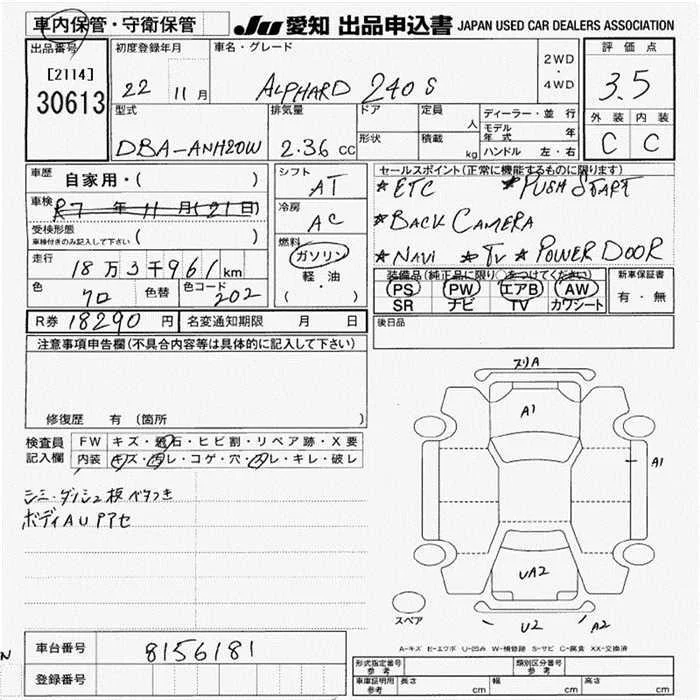 車内保管・守衛保管
JU 愛知 出品申込書 JAPAN USED CAR DEALERS ASSOCIATION
出品番号
[2114]
30613
初度登録年月
22 11月
車名・グレード
ALPHARD 240 S
2WD
・
4WD
評価点
3.5
外装 内装
C C
型式
DBA-ANH20W
排気量
2.36 cc
ドア
形状
定員
人
積載
kg
ディーラー・並行
モデル年式 年
ハンドル 左・右
車歴 自家用・( )
車検 R7 年 11 月 (21日)
受検形態
車検付きのみ記入して下さい ( )
走行 18万3千961km
色 クロ 色替 色コード 202
R券 18290 円 名変通知期限 月 日
シフト
AT
冷房
AC
燃料
ガソリン
軽・油
( )
セールスポイント(正常に機能するものに限ります)
★ETC ★PUSH START
★BACK CAMERA
★NAVI ★TV ★POWER DOOR
装備品(純正品に限り○をつけてください)
PS PW エアB AW
SR ナビ TV カワシート
新車保証書
有・無
後日品
注意事項申告欄(不具合内容等は具体的に記入して下さい)
修復歴 有 (箇所 )
検査員記入欄
FW キズ・飛石・ヒビ割・リペア跡・X要
内装 キズ・汚レ・コゲ・穴・スレ・キレ・破レ
シミ・ダッシュ板ベタつき
ボディAUアアセ
スリA
A1
A1
UA2
U2
A2
スペア
A-キズ E-エクボ U-凹み W-補修跡 S-サビ C-腐食 XX-交換済
車台番号 8156181
登録番号
N
形式指定番号
参考
類別区分番号
参考
車庫証明用
参考
長さ cm 幅 cm 高さ cm